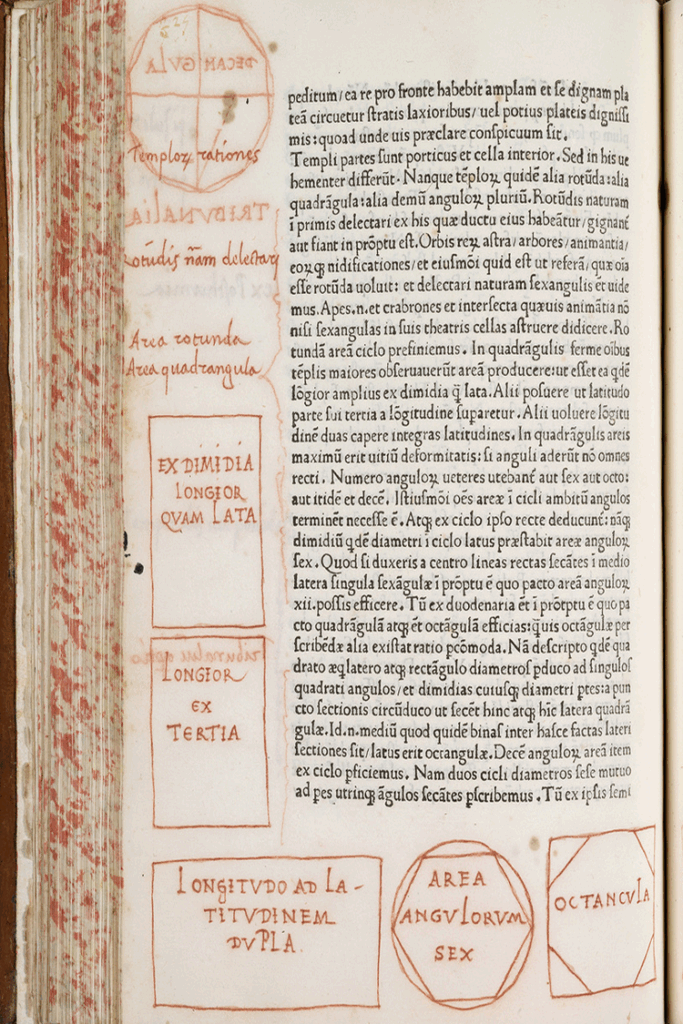 DECANGVLA
Temploꝝ rationes
TRIBVNALIA
rotūdis nām delectarj
Area rotunda
Area quadrangula
EX DIMIDIA
LONGIOR
QVAM LATA
LONGIOR
EX
TERTIA
peditum/ea re pro fronte habebit amplam et se dignam pla
teā circuetur stratis laxioribus/uel potius plateis digniſſi
mis:quoad unde uis præclare conſpicuum ſit.
Templi partes ſunt porticus et cella interior.Sed in his ue
hementer differūt.Nanque tēploꝝ quidē alia rotūda:alia
quadrāgula:alia demū anguloꝝ pluriū.Rotūdis naturam
ī primis delectari ex his quæ ductu eius habeātur/gignanť
aut fiant in prōptu eſt.Orbis reꝝ aſtra/arbores/animantia/
eoꝝq; nidificationes/et eiuſmōi quid eſt ut referā/quæ oīa
eſſe rotūda uoluit: et delectari naturam ſexangulis ēt uide
mus.Apes.n.et crabrones et inſecta quæuis animātia nō
niſi ſexangulas in ſuis theatris cellas aſtruere didicere.Ro
tundā areā ciclo prefiniemus. In quadrāgulis ferme oībus
tēplis maiores obſeruauerūt areā producere:ut eſſet ea qdē
lōgior amplius ex dimidia q̄ lata.Alii poſuere ut latitudo
parte ſui tertia a lōgitudine ſuparetur.Alii uoluere lōgitu
dinē duas capere integras latitudines.In quadrāgulis areis
maximū erit uitiū deformitatis:ſi anguli aderūt nō omnes
recti. Numero anguloꝝ ueteres utebanť aut ſex aut octo:
aut itidē et decē.Iſtiuſmōi oēs areæ ī cicli ambitū angulos
terminēt neceſſe ē.Atq; ex ciclo ipſo recte deducunť:nāq;
dimidiū qdē diametri ī ciclo latus præſtabit areæ anguloꝝ
ſex.Quod ſi duxeris a centro lineas rectas ſecātes ī medio
latera ſingula ſexāgulæ ī prōptu ē quo pacto areā anguloꝝ
xii.poſſis efficere.Tū ex duodenaria ēt ī prōtptu ē quo pa
cto quadrāgulā atq; ēt octāgulā efficias:q̄uis octāgulæ per
ſcribēdæ alia exiſtat ratio pcōmoda.Nā deſcripto qdē qua
drato æq latero atq; rectāgulo diametros pduco ad ſingulos
quadrati angulos/et dimidias cuiuſq; diametri ptes:a pun
cto ſectionis circūduco ut ſecēt hinc atq; hīc latera quadrā
gulæ.Id.n.mediū quod quidē binas inter haſce factas lateri
ſectiones ſit/latus erit octangulæ.Decē anguloꝝ areā item
ex ciclo pficiemus. Nam duos cicli diametros ſeſe mutuo
ad pes utrinq; āgulos ſecātes pſcribemus.Tū ex ipſis ſemi
LONGITVDO AD LA-
TITVDINEM
DVPLA
AREA
ANGVLORVM
SEX
OCTANGVLA